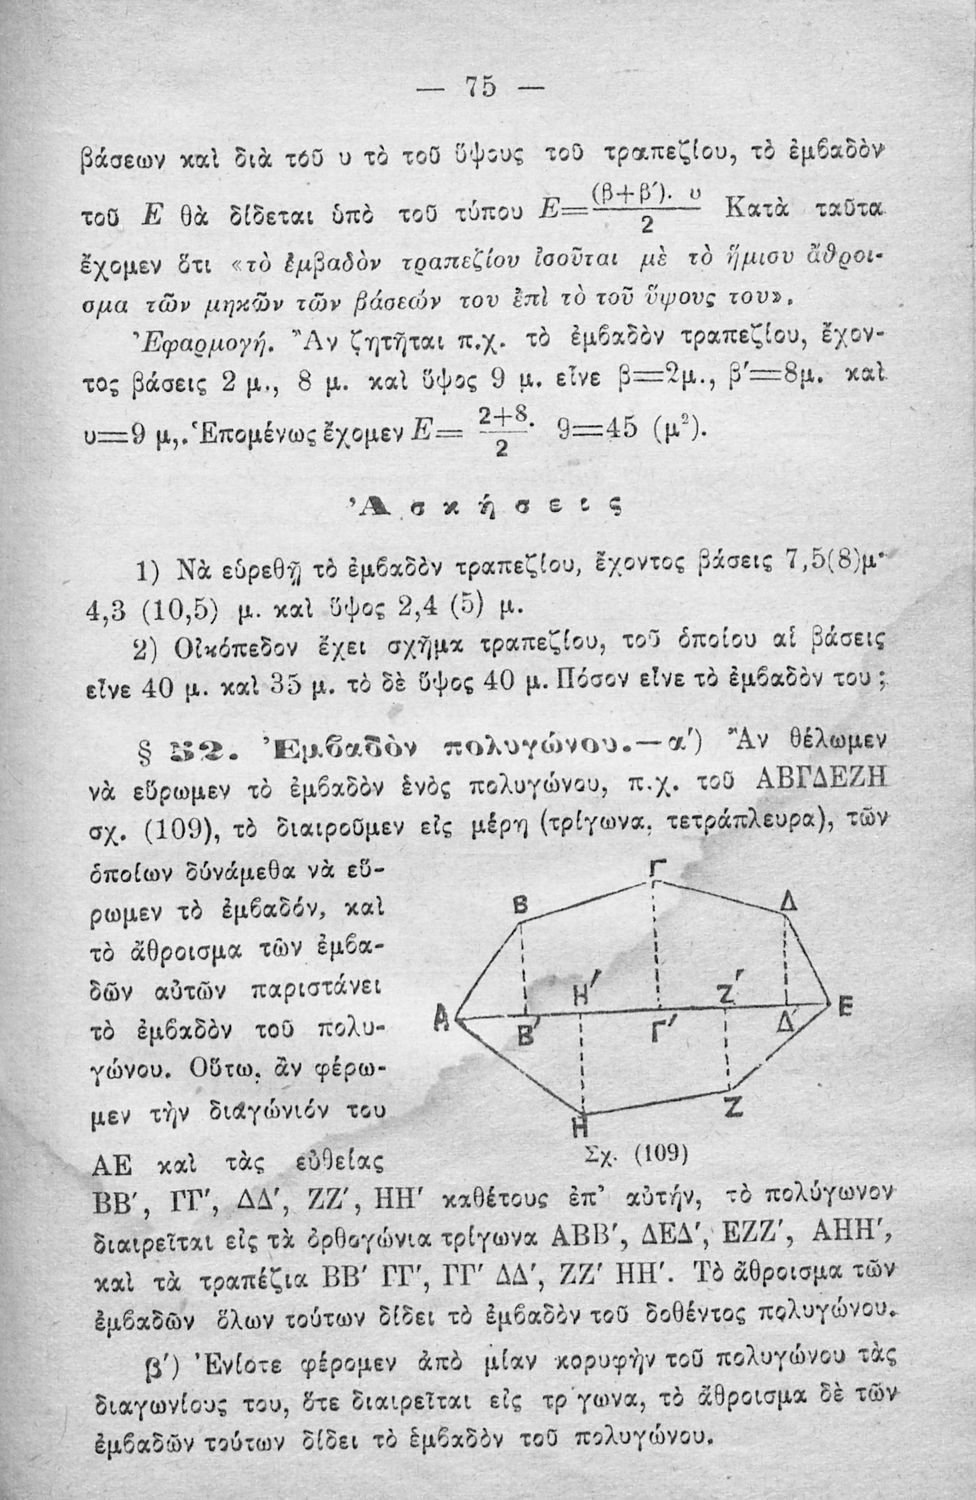 — 75 —
βάσεων καὶ διὰ τοῦ υ τὸ τοῦ ὕψους τοῦ τραπεζίου, τὸ ἐμβαδὸν
τοῦ Ε θὰ δίδεται ὑπὸ τοῦ τύπου Ε=(β+β'). υ / 2 Κατὰ ταῦτα
ἔχομεν ὅτι «τὸ ἐμβαδὸν τραπεζίου ἰσοῦται μὲ τὸ ἥμισυ ἄθροι-
σμα τῶν μηκῶν τῶν βάσεών του ἐπὶ τὸ τοῦ ὕψους του».
Ἐφαρμογή. Ἂν ζητῆται π.χ. τὸ ἐμβαδὸν τραπεζίου, ἔχον-
τος βάσεις 2 μ., 8 μ. καὶ ὕψος 9 μ. εἶνε β=2μ., β'=8μ. καὶ
υ=9 μ,. Ἑπομένως ἔχομεν Ε= 2+8 / 2 · 9=45 (μ²).
Ἀσκήσεις
1) Νὰ εὑρεθῇ τὸ ἐμβαδὸν τραπεζίου, ἔχοντος βάσεις 7,5(8)μ·
4,3 (10,5) μ. καὶ ὕψος 2,4 (5) μ.
2) Οἰκόπεδον ἔχει σχῆμα τραπεζίου, τοῦ ὁποίου αἱ βάσεις
εἶνε 40 μ. καὶ 35 μ. τὸ δὲ ὕψος 40 μ. Πόσον εἶνε τὸ ἐμβαδὸν του ;
§ 52. Ἐμβαδὸν πολυγώνου.— α') Ἂν θέλωμεν
νὰ εὕρωμεν τὸ ἐμβαδὸν ἑνὸς πολυγώνου, π.χ. τοῦ ΑΒΓΔΕΖΗ
σχ. (109), τὸ διαιροῦμεν εἰς μέρη (τρίγωνα, τετράπλευρα), τῶν
ὁποίων δύνάμεθα νὰ εὕ-
ρωμεν τὸ ἐμβαδόν, καὶ
τὸ ἄθροισμα τῶν ἐμβα-
δῶν αὐτῶν παριστάνει
τὸ ἐμβαδὸν τοῦ πολυ-
γώνου. Οὕτω, ἂν φέρω-
μεν τὴν διαγώνιόν του
ΑΕ καὶ τὰς εὐθείας
Γ
Β Δ
Η' Ζ'
Α Β' Γ' Δ' Ε
Η Ζ
Σχ. (109)
ΒΒ', ΓΓ', ΔΔ', ΖΖ', ΗΗ' καθέτους ἐπ' αὐτήν, τὸ πολύγωνον
διαιρεῖται εἰς τὰ ὀρθογώνια τρίγωνα ΑΒΒ', ΔΕΔ', ΕΖΖ', ΑΗΗ',
καὶ τὰ τραπέζια ΒΒ' ΓΓ', ΓΓ' ΔΔ', ΖΖ' ΗΗ'. Τὸ ἄθροισμα τῶν
ἐμβαδῶν ὅλων τούτων δίδει τὸ ἐμβαδὸν τοῦ δοθέντος πολυγώνου.
β') Ἐνίοτε φέρομεν ἀπὸ μίαν κορυφὴν τοῦ πολυγώνου τὰς
διαγωνίους του, ὅτε διαιρεῖται εἰς τρ γωνα, τὸ ἄθροισμα δὲ τῶν
ἐμβαδῶν τούτων δίδει τὸ ἐμβαδὸν τοῦ πολυγώνου.